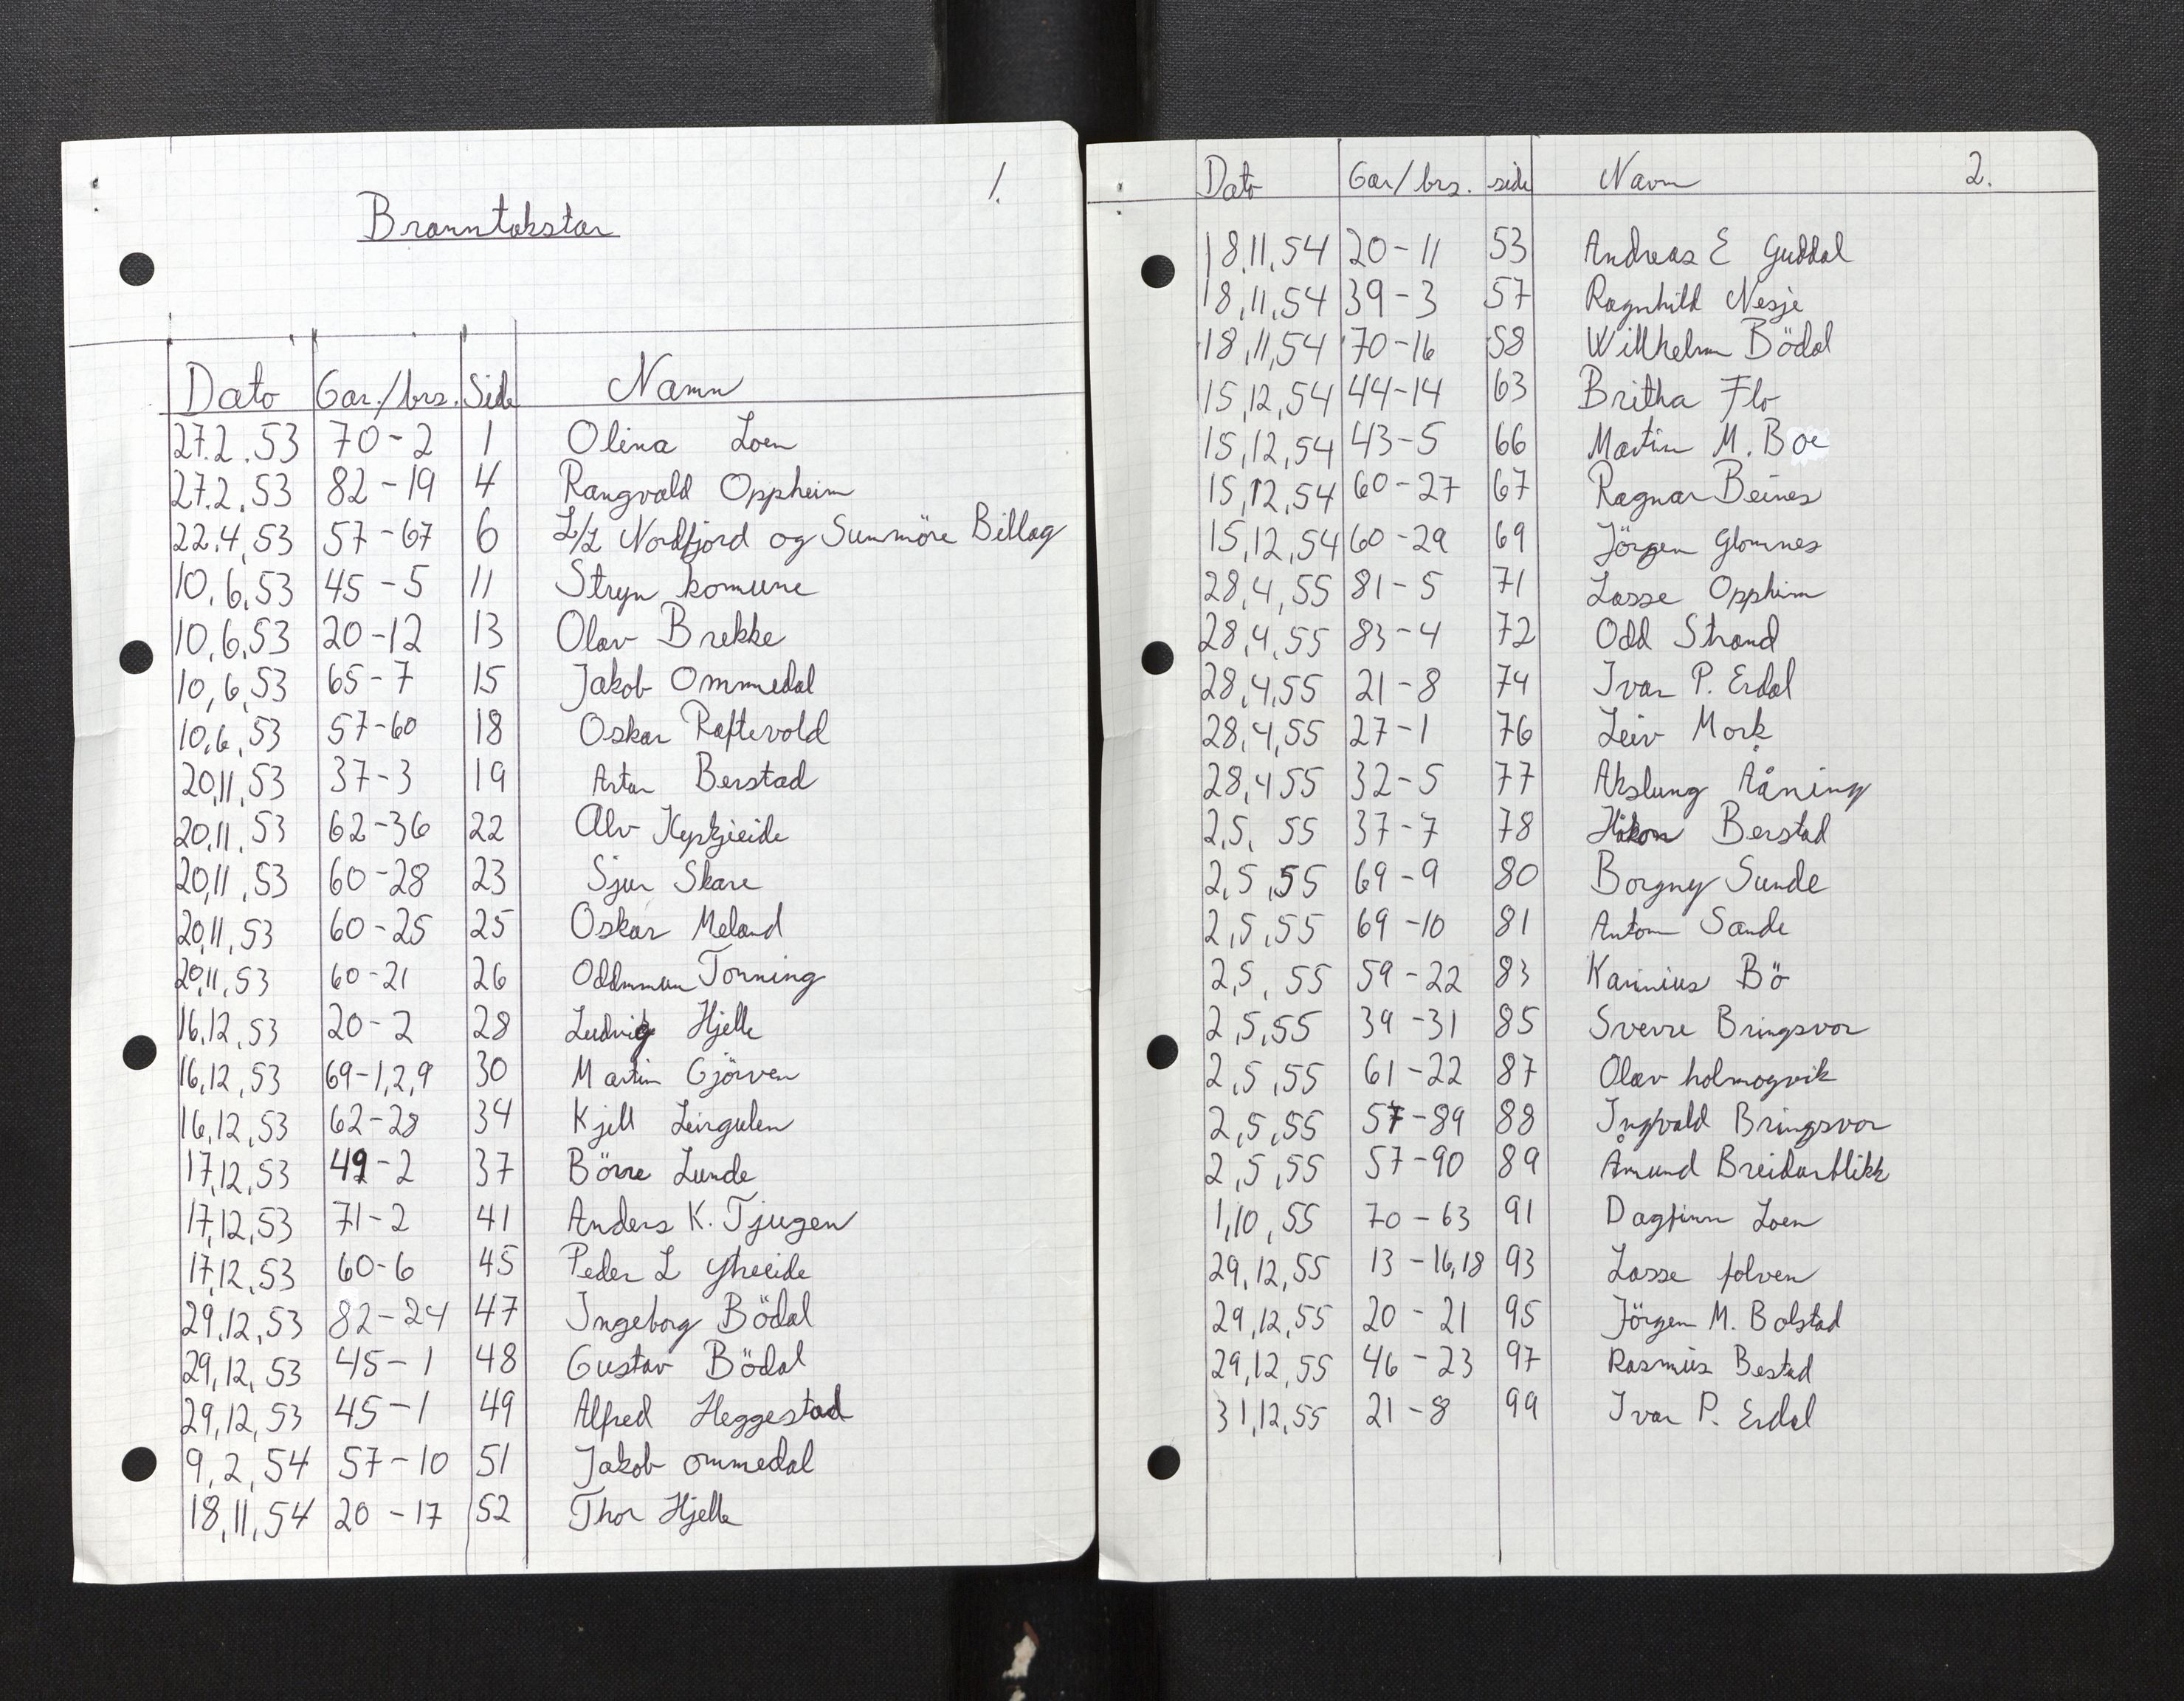 1.
Branntakstar
Dato Gar./brs. Side Namn
27.2.53 70-2 1 Olina Loen
27.2.53 82-19 4 Rangvald Oppheim
22.4.53 57-67 6 L/L Nordfjord og Sunnmöre Billag
10,6,53 45-5 11 Stryn komune
10,6,53 20-12 13 Olav Brekke
10,6,53 65-7 15 Jakob Ommedal
10,6,53 57-60 18 Oskar Raftevold
20,11,53 37-3 19 Artur Berstad
20,11,53 62-36 22 Alv
20,11,53 60-28 23 Sjur Skare
20,11,53 60-25 25 Oskar Meland
20,11,53 60-21 26 Oddmun Tonning
16,12,53 20-2 28 Ludvig Hjelle
16,12,53 69-1,2,9 30 Martin Gjörven
16,12,53 62-28 34 Kjell Leirgulen
17,12,53 49-2 37 Börre Lunde
17,12,53 71-2 41 Anders K. Tjugen
17,12,53 60-6 45 Peder L Ytreeide
29,12,53 82-24 47 Ingeborg Bödal
29,12,53 45-1 48 Gustav Bödal
29,12,53 45-1 49 Alfred Heggestad
9,2,54 57-10 51 Jakob ommedal
18,11,54 20-17 52 Thor Hjelle
Dato Gar/brs. side Navn 2.
18.11.54 20-11 53 Andreas E Guddal
18,11,54 39-3 57 Ragnhild Nesje
18,11,54 70-16 58 Willhelm Bödal
15,12,54 44-14 63 Britha Flo
15,12,54 43-5 66 Martin M. Boe
15,12,54 60-27 67 Ragnar Beines
15,12,54 60-29 69 Jörgen Glomnes
28,4,55 81-5 71 Lasse Oppheim
28,4,55 83-4 72 Odd Strand
28,4,55 21-8 74 Ivar P. Erdal
28,4,55 27-1 76 Leiv Mork
28,4,55 32-5 77 Akslung Aåning
2,5,55 37-7 78 Håkon Berstad
2,5,55 69-9 80 Borgny Sunde
2,5,55 69-10 81 Anton Sande
2,5,55 59-22 83 Karinius Bö
2,5,55 39-31 85 Sverre Bringsvor
2,5,55 61-22 87 Olav holmogvik
2,5,55 57-89 88 Ingvald Bringsvor
2,5,55 57-90 89 Åmund Breidablikk
1,10,55 70-63 91 Dagfinn Loen
29,12,55 13-16,18 93 Lasse folven
29,12,55 20-21 95 Jörgen M. Bolstad
29,12,55 46-23 97 Rasmus Bestad
31,12,55 21-8 99 Ivar P. Erdal